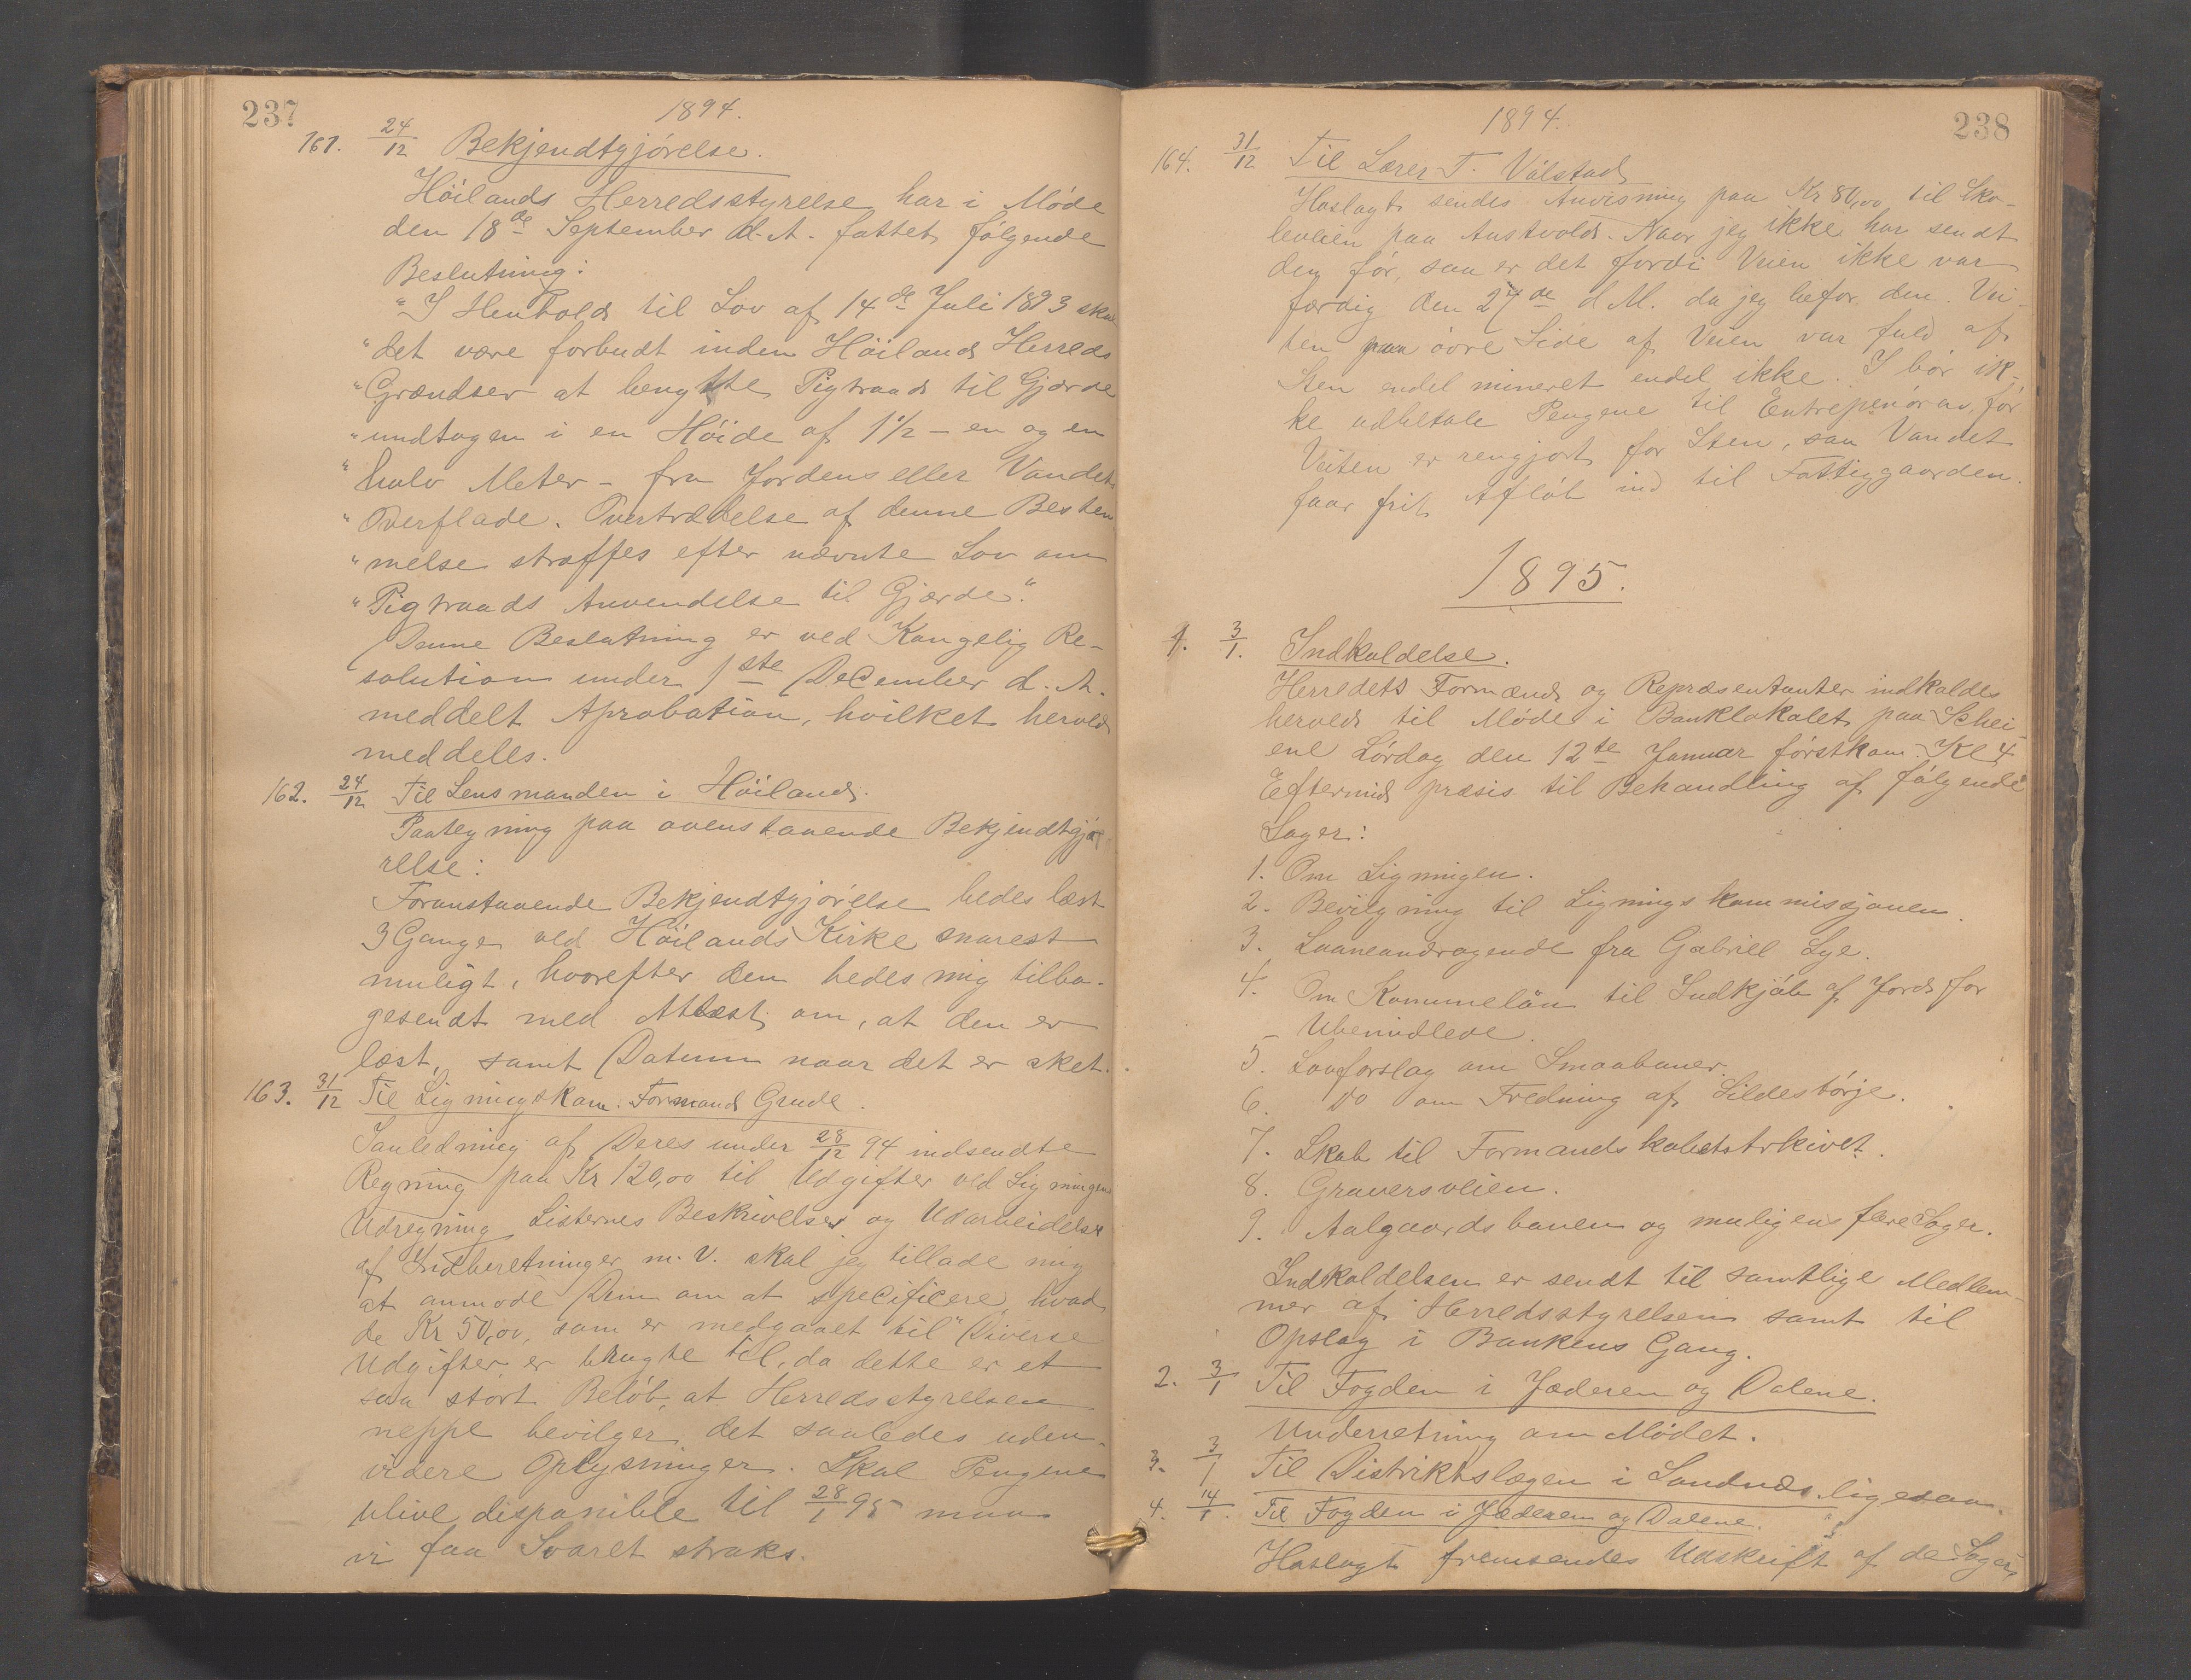 237
1894.
161. 24/12 Bekjendtgjörelse.
Höilands Herredsstyrelse har i Möde
den 18de September d. A. fattet fölgende
Beslutning:
"I Henhold til Lov af 14de Juli 1893 skal
"det være forbudt inden Höilands Herreds
"Grændser at benytte Pigtraad til Gjærde
"undtagen i en Höide af 1 1/2 - en og en
"halv Meter - fra Jordens eller Vandets
"Overflade. Overtrædelse af denne Bestem
"melse straffes efter nævnte Lov om
"Pigtraads Anvendelse til Gjærde."
Denne Beslutning er ved Kongelig Re-
solution under 1ste December d. A.
meddelt Aprobation, hvilket herved
meddeles.
162. 24/12 Til Lensmanden i Höiland.
Paategning paa ovenstaaende Bekjendtgjö-
relse:
Foranstaaende Bekjendtgjörelse bedes læst
3 Gange ved Höilands Kirke snarest
muligt, hvorefter den bedes mig tilba-
gesendt med Attest om, at den er
læst, samt Datum naar det er sket.
163. 31/12 Til Ligningskom. Formand Grude.
I anledning af Deres under 28/12 94 indsendte
Regning paa Kr 120,00 til Udgifter ved Ligningens
Udregning Listernes Beskrivelser og Udarbeidelse
af Indberetninger m. V. skal jeg tillade mig
at anmode Dem om at specificere, hvad
de Kr 50,00, som er medgaaet til "Diverse
Udgifter er brugte til, da dette er et
saa stort Belöb, at Herredsstyrelsen
neppe bevilger det saaledes uden
videre Oplysninger. Skal Pengene
blive disponible til 28/1 95 maa
vi faa Svaret straks.
238
1894.
164. 31/12 Til Lærer T. Válstad
Hoslagt sendes Anvisning paa Kr 80,00 til Sko-
leveien paa Austvold. Naar jeg ikke har sendt
den för, saa er det fordi Veien ikke var
færdig den 27de d. M. da jeg befor den. Vei-
ten paa övre Side af Veien var fuld af
Sten endel mineret endel ikke. I bör ik-
ke udbetale Pengene til Entrepenören, för
Veiten er rengjort for Sten, saa Vandet
faar frit Aflöb ind til Fattiggaarden.
1895.
1. 3/1. Indkaldelse.
Herredets Formænd og Repræsentanter indkaldes
herved til Möde i Banklokalet paa Schei-
ene Lördag den 12te Januar förstkom. Kl 4
Eftermid præsis til Behandling af fölgende
Sager:
1. Om Ligningen.
2. Bevilgning til Ligningskommissjonen.
3. Laaneandragende fra Gabriel Lye.
4. Om Kommunelån til Indkjöb af Jord for
Ubemidlede.
5. Lovforslag om Smaabaner.
6. Do om Fredning af Sildestörje.
7. Skab til Formandskabets Arkivet.
8. Graversveien.
9. Aalgaardsbanen og muligens flere Sager.
Indkaldelsen er sendt til samtlige Medlem-
mer af Herredsstyrelsen samt til
Opslag i Bankens Gang.
2. 3/1 Til Fogden i Jæderen og Dalene.
Underretning om Mödet.
3. 3/1 Til Distriktslægen i Sandnæs ligesaa.
4. 14/1. Til Fogden i Jæderen og Dalene.
Hoslagt fremsendes Udskrift af de Sager,